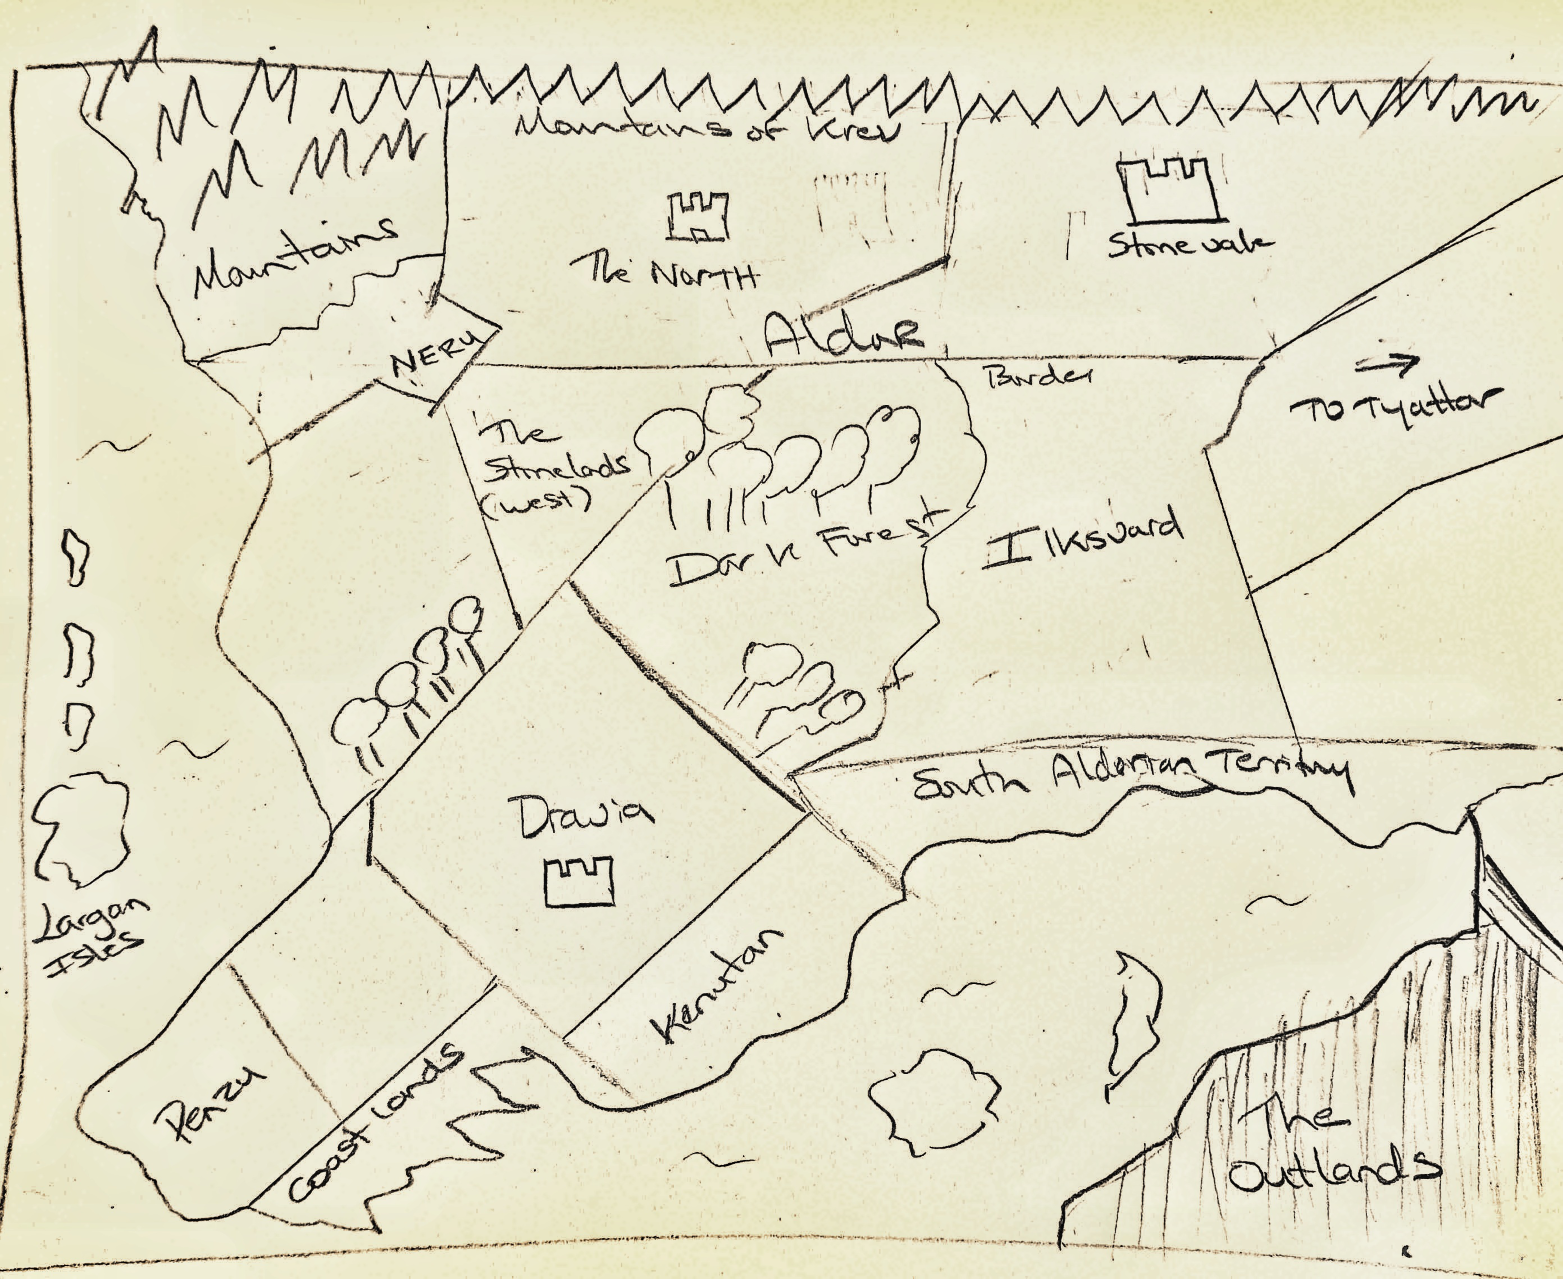 Mountains of Krev
Mountains
The NORTH
Stonevale
NERU
AldaR
Border
To Tyattor
The
Stonelads
(west)
Dark Forest
Ilksvard
South Aldorian Territory
Dravia
Largan
Isles
Kenutan
Penzu
Coast lands
The
Outlands